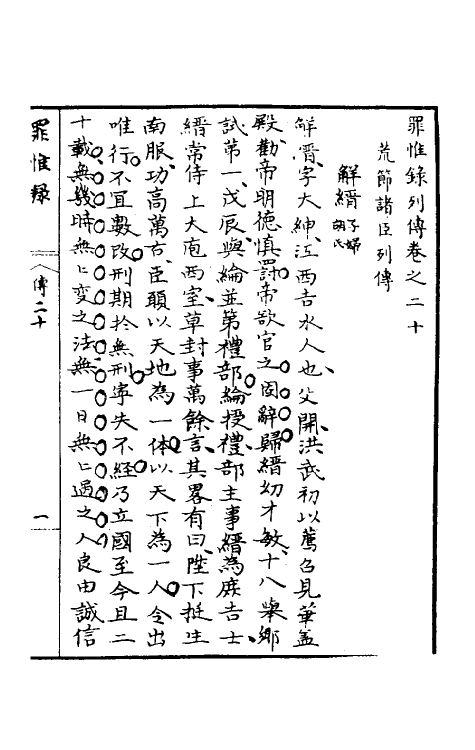 罪惟錄列傳卷之二十
荒節諸臣列傳
解縉 子婦胡氏
解縉、字大紳、江西吉水人也、父開、洪武初以薦召見華蓋
殿、勸帝明德慎罰、帝欲官之、固辭歸、縉幼才敏、十八舉鄉
試第一、戊辰、與綸並第禮部、綸授禮部主事、縉為庶吉士、
縉常侍上大庖西室、草封事萬餘言、其畧有曰、陛下挺生
南服、功高萬古、臣願以天地為一体、以天下為一人、令出
唯行、不宜數改、刑期於無刑、寧失不經、乃立國至今且二
十載、無幾時無ヒ変之法、無一日無ヒ過之人、良由誠信
罪惟録
傳二十
一